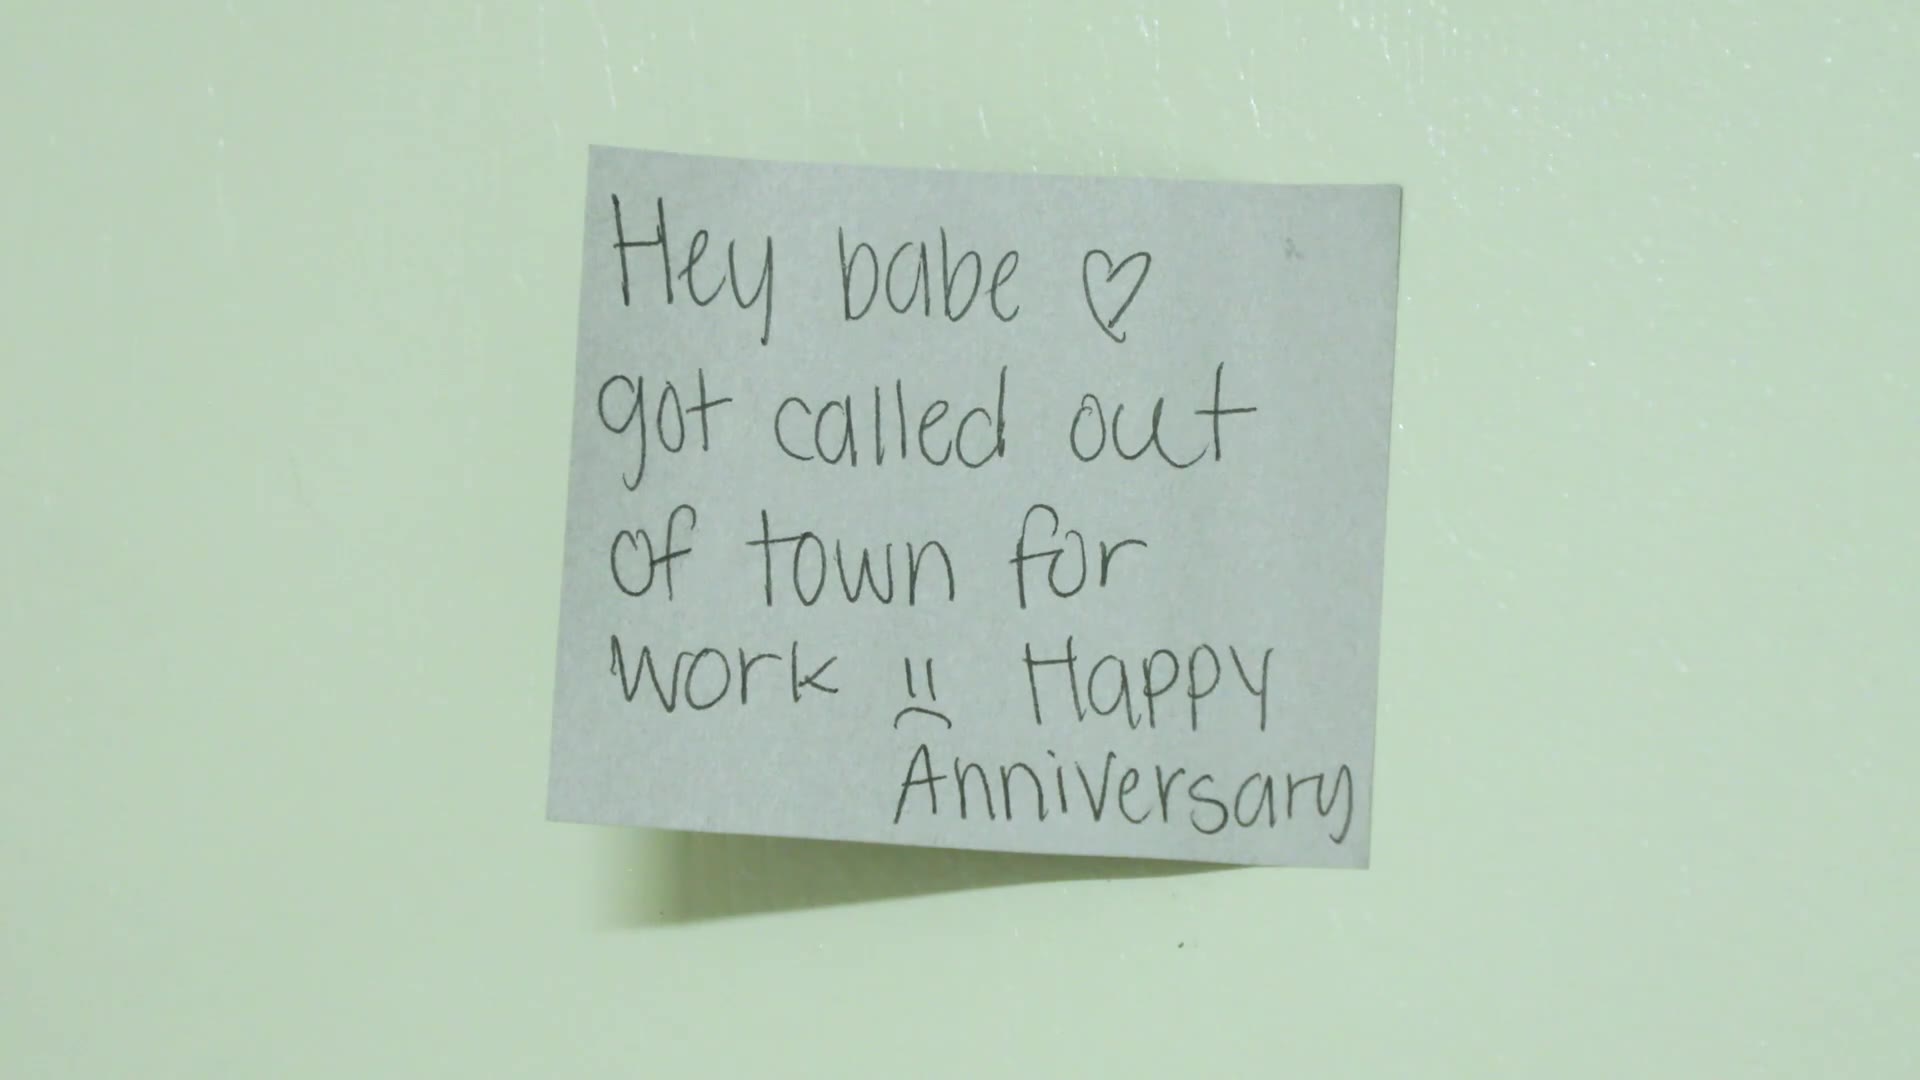 Hey babe ♡
got called out
of town for
work :( Happy
Anniversary